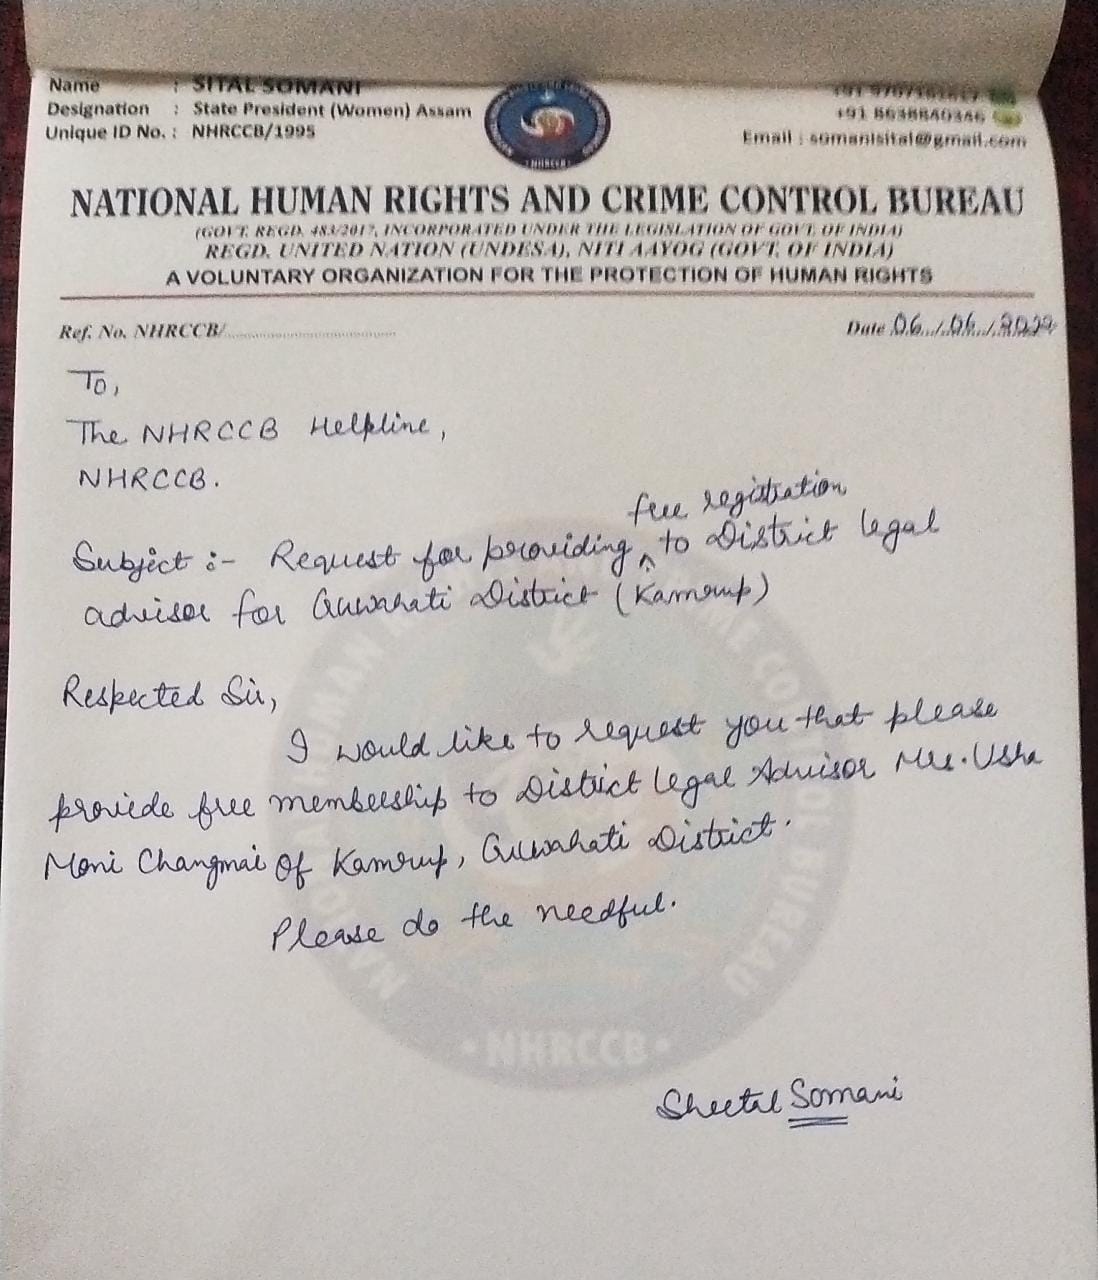 Name : SITAL SOMANI
Designation : State President (Women) Assam
Unique ID No. : NHRCCB/1995
+91 8638840346
Email : somanisital@gmail.com
NHRCCB
NATIONAL HUMAN RIGHTS AND CRIME CONTROL BUREAU
(GOVT. REGD. 483/2017, INCORPORATED UNDER THE LEGISLATION OF GOVT. OF INDIA)
REGD. UNITED NATION (UNDESA), NITI AAYOG (GOVT. OF INDIA)
A VOLUNTARY ORGANIZATION FOR THE PROTECTION OF HUMAN RIGHTS
Ref. No. NHRCCB/
Date 06/06/2022
To,
The NHRCCB Helpline,
NHRCCB.
free registration
Subject :- Request for providing ^ to District legal
advisor for Guwahati District (Kamrup)
Respected Sir,
I would like to request you that please
provide free membership to District Legal Advisor Mrs. Usha
Moni Changmai of Kamrup, Guwahati District.
Please do the needful.
NATIONAL HUMAN RIGHTS AND CRIME CONTROL BUREAU
• NHRCCB •
Sheetal Somani